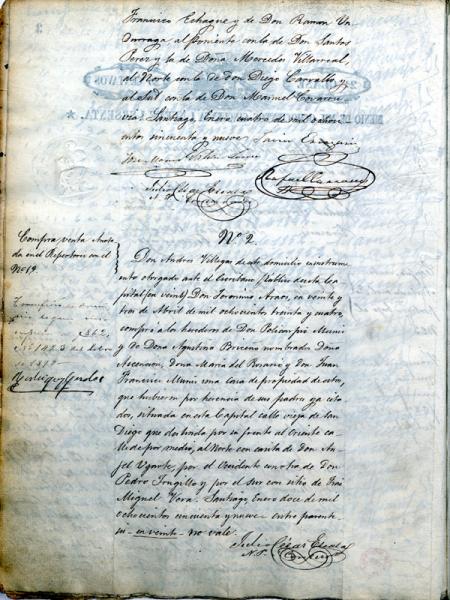 Francisco Echague y de Don Ramon Un
durraga al poniente con la de Don Santos
Perez y la de Dona Mercedes Villarreal,
al Norte con la de don Diego Carvallo y
al Sud con la de Don Manuel Covarru
vias: Santiago, Enero cuatro de mil ochoci
entos cincuenta y nueve
Julio César Escala
Nº 2.
Compra venta Anota
da en el Repertorio con el
Nº 19
Don Andres Villegas de este domicilio en instrum
ento otorgado ante el Escribano Público de esta Ca
pital (en veint) Don Jeronimo Araos, en veinte y
tres de Abril de mil ochocientos treinta y cuatro,
compró a los herederos de Don Policarpio Muni
y de Dona Agustina Briceno nombrados Dona
Ascencion, Dona Maria del Rosario y don Juan
Francisco Muni una casa de propiedad de estos,
que hubieron por herencia de sus padres ya cita
dos, situada en esta Capital calle vieja de San
Diego que deslinda por su frente al Oriente ca
lle de por medio, al Norte con casita de Don An
jel Ugarte, por el Occidente con otra de Don
Pedro Jongillo y por el sur con sitio de Frai
Miguel Vera. Santiago, Enero doce de mil
ochocientos cincuenta y nueve - entre parente-
sis - en veinte - no vale.
Julio César Escala
N.P.